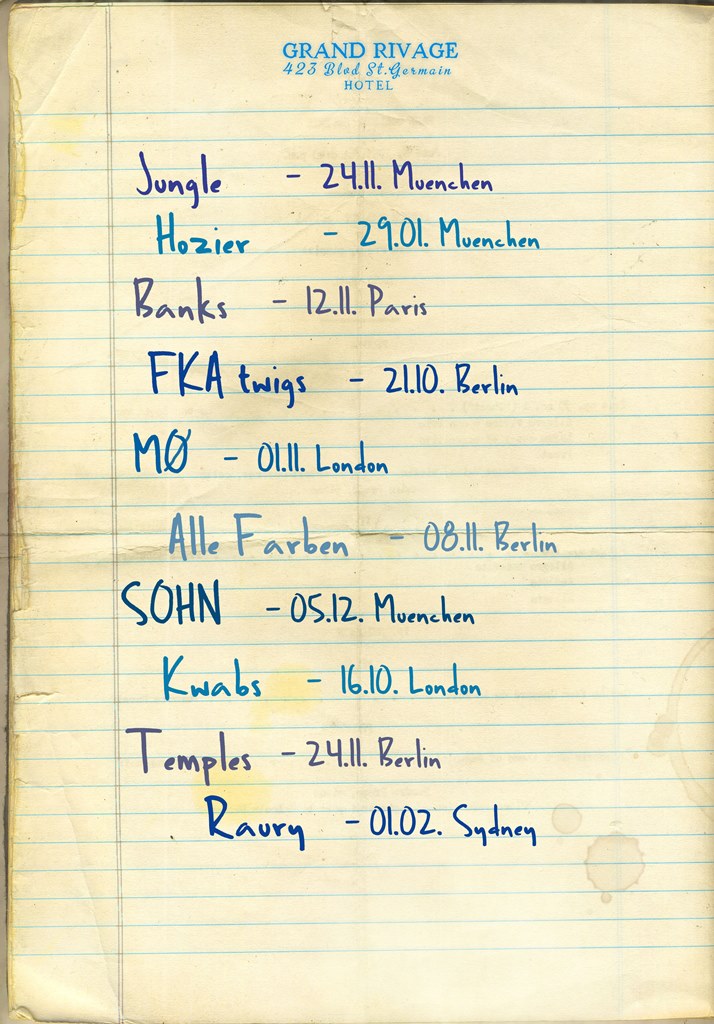 GRAND RIVAGE
423 Blvd St.Germain
HOTEL
Jungle - 24.11. Muenchen
Hozier - 29.01. Muenchen
Banks - 12.11. Paris
FKA twigs - 21.10. Berlin
MØ - 01.11. London
Alle Farben - 08.11. Berlin
SOHN - 05.12. Muenchen
Kwabs - 16.10. London
Temples - 24.11. Berlin
Raury - 01.02. Sydney